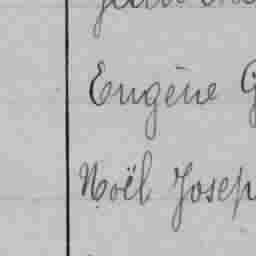 Eugène G
Noël Josep